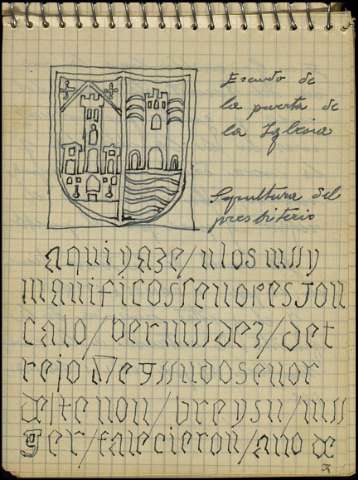 Escudo de
la puerta de
la Iglesia
Sepultura del
presbiterio
aqui yaze/nlos muy
manificos señores Jon
calo/bermudez/det
rejo señor
tenor/
ger/falecieron/ano